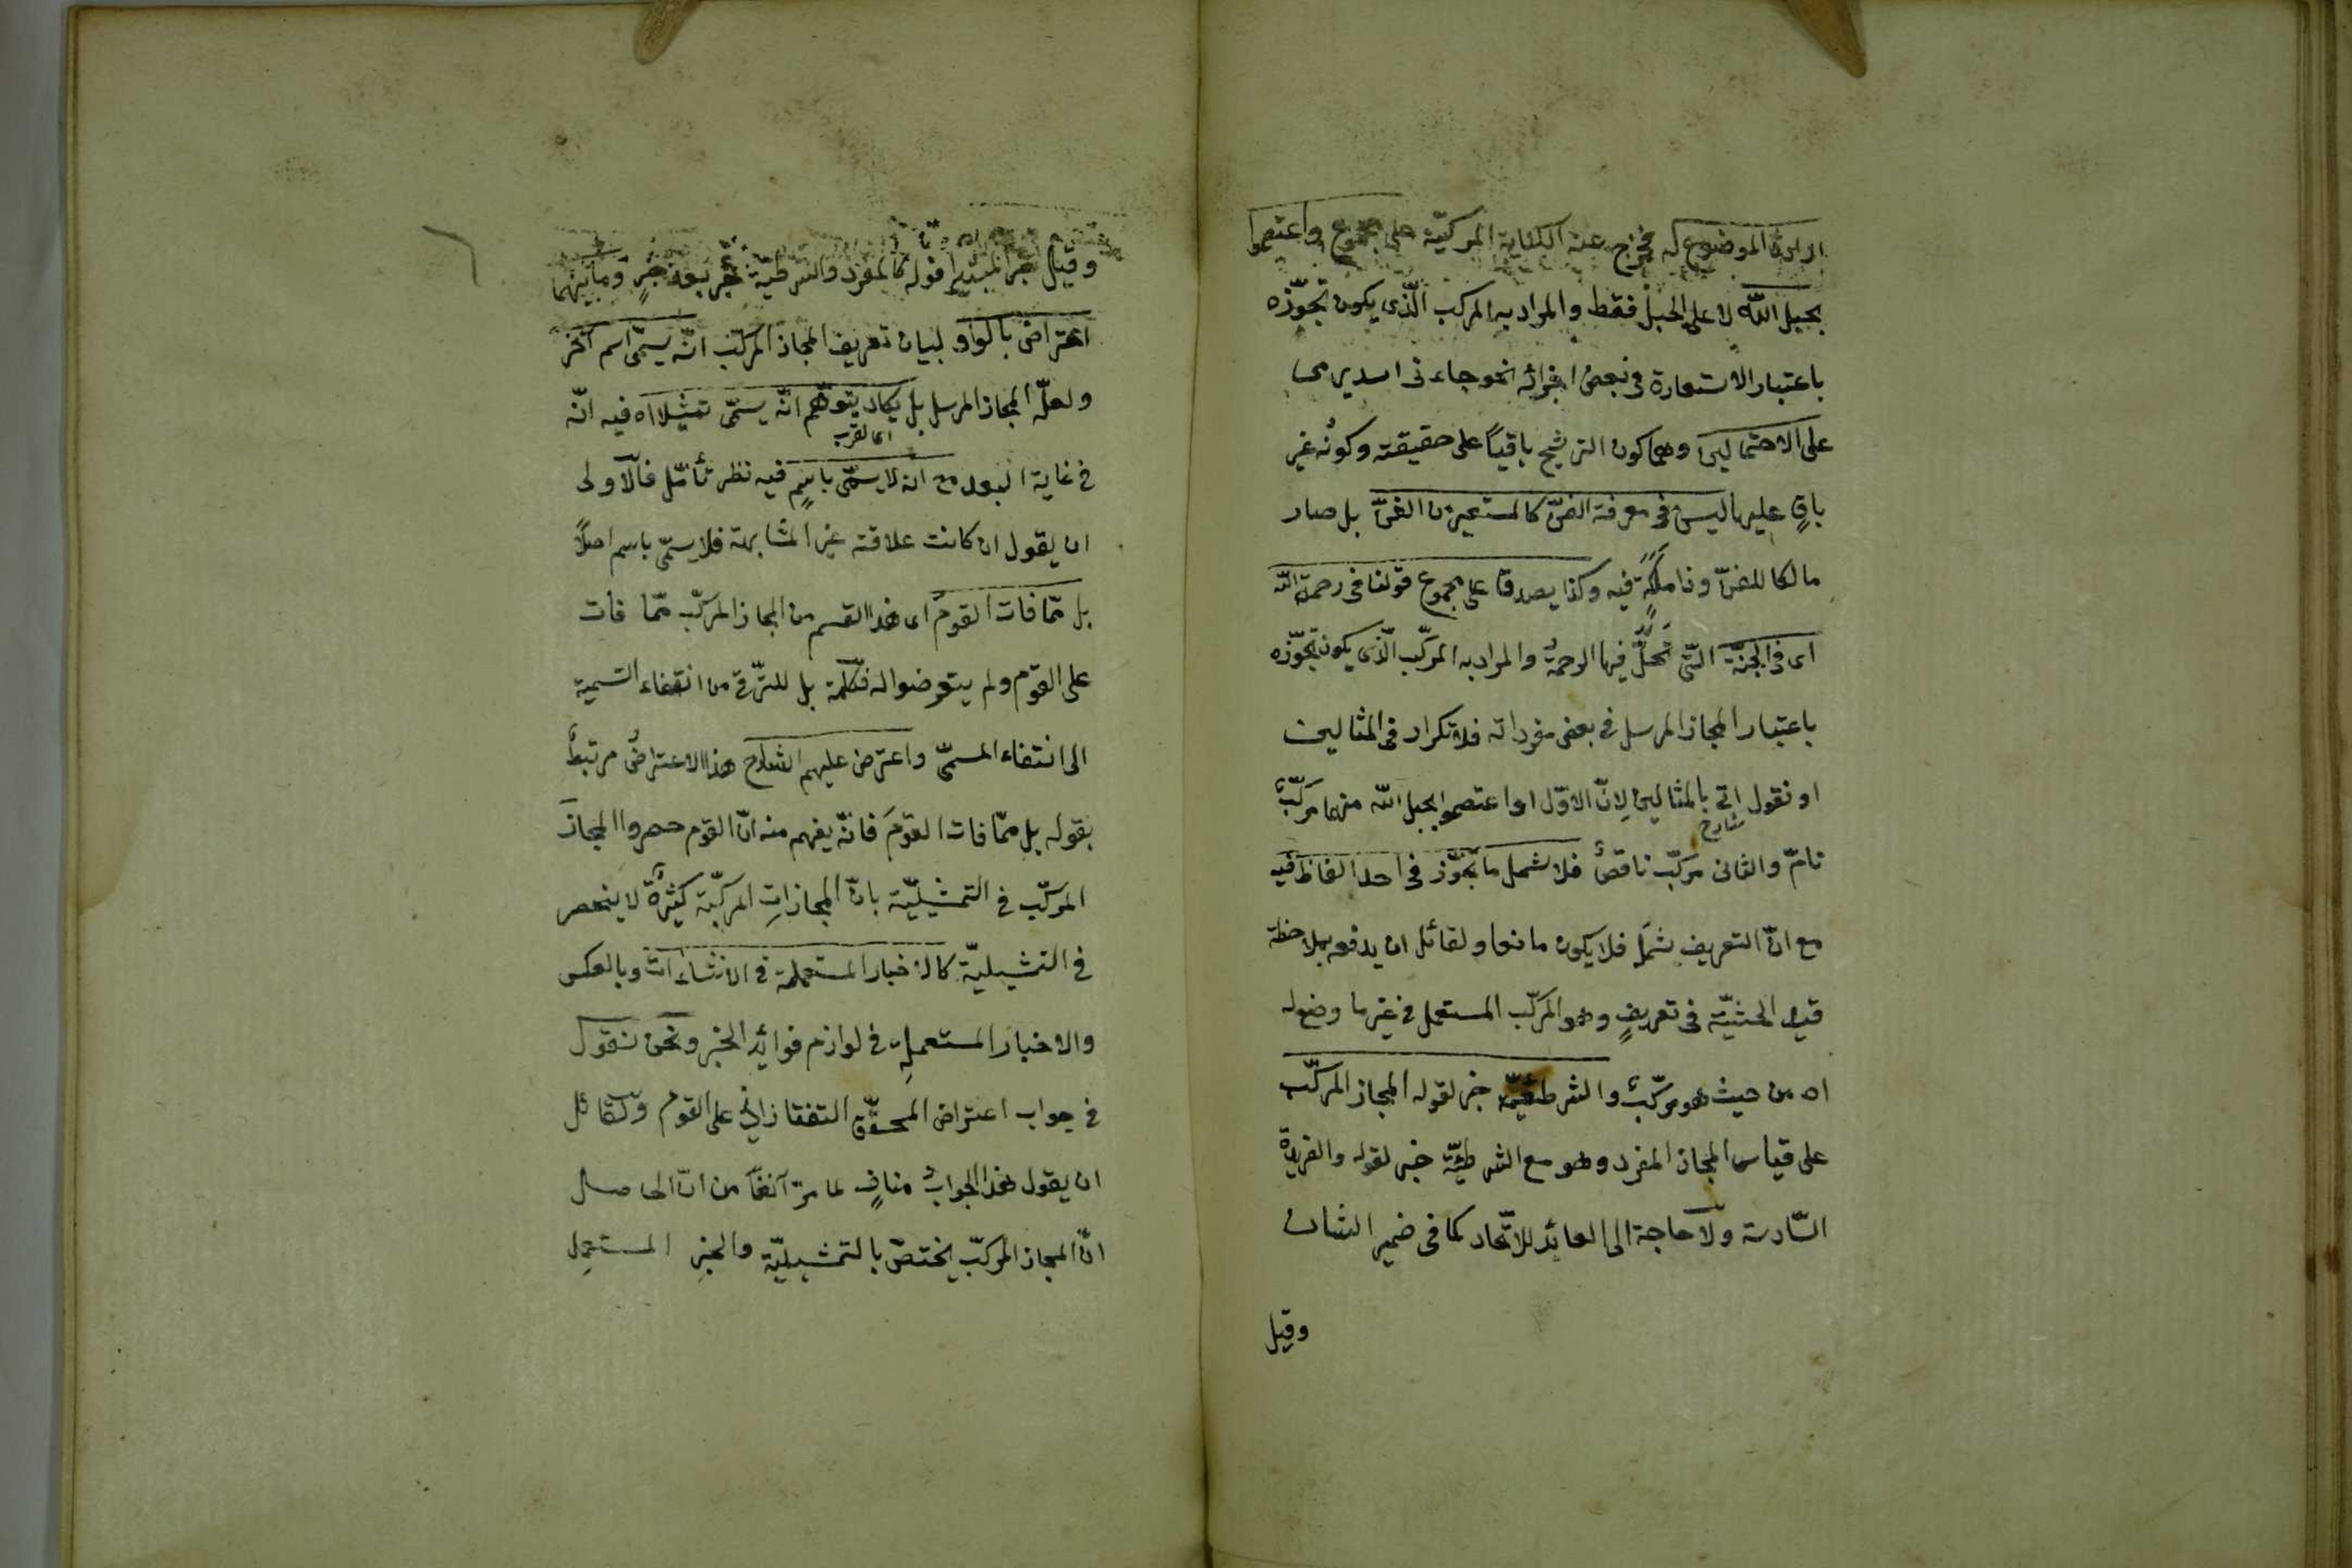 ارادة الموضوع له فخرج عنه الكناية المركبيّة على مجموع واعتصموا
بحبل الله لا على الحبل فقط والمراد به المركب الّذى يكون تجوّزه
باعتبار الاستعارة فى بعض اجزائه نحو جاءنى اسد يرمى
على الاحتمالين وهما كون الترشيح باقياً على حقيقته وكونُه غير
باقٍ عليها ليس فى معرفة الفنّ كالمستعير من الفنّ بل صار
مالكا للفنّ وذا ملكةٍ فيه وكذا يصدق على مجموع قولنا فى رحمة الله
اى فى الجنّة الّتى تحلّ فيها الرحمةُ والمراد به المركّب الّذى يكون تجوّزه
باعتبار المجاز المرسل فى بعض مفرداته فلا تكرار فى المثالين
او نقول اتى بالمثالين لانّ الاوّل اى واعتصموا بحبل الله منهما مركّبٌ
شارح
تامّ والثانى مركّب ناقصٌ فلا تشمل ما تجوّز فى احد الفاظ فيه
مع انّ التعريف يشمله فلا يكون مانعا ولقائل ان يدفعه بملاحظة
قيد الحيثيّة فى تعريفٍ وهو المركّب المستعمل فى غير ما وضع له
اه من حيث هو مركّبٌ والشرطيّة خبر لقوله المجاز المركّب
على قياس المجاز المفرد وهو مع الشرطيّة خبر لقوله والفريدة
السّادسة ولا حاجة الى العائد للاتّحاد كما فى ضمير الشان
وقيل
وقيل خبر المبتدا قوله كالمفرد والشرطيّة خبر بعد خبرٍ وما بينهما
اعتراض بالواو لبيان تعريف المجاز المركّب انّه يسمّى اسم آخر
ولعلّه المجاز المرسل بل يكاد يتوهّم انّه يسمّى تمثيلا اه فيه انّه
اى لقرب
فى غاية البعد مع انه لا يسمّى باسمٍ فيه نظر تأمّل فالاولى
ان يقول ان كانت علاقته غير المشابهة فلا يسمّى باسم اصلاً
بل ممّا فات القومُ اى هذا القسم من المجاز المركّب ممّا فات
على القوم ولم يتعرضوا له فكلمة بل للترّقى من انتفاء التسمية
الى انتفاء المسمّى واعترض عليهم الشارح هذا الاعتراضُ مرتبطٌ
بقوله بل ممّا فات القومَ فانّه يفهم منه انّ القوم حصروا المجازَ
المركّب فى التمثيليّة بانّ المجازاتِ المركّبة كثيرةٌ لا ينحصر
فى التمثيليّة كالاخبار المستعملة فى الانشاءات وبالعكس
والاخبار المستعملِة فى لوازم فوائد الخبر ونحن نقول
فى جواب اعتراض المحقّق التفتازانى على القوم ولقائل
ان يقول هذا الجوابُ منافٍ لما مرّ آنفاً من انّ الحاصل
انّ المجاز المركّب يختصّ بالتمثيليّة والخبرِ المستعمِل